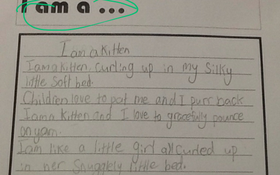 I am a ...
I am a kitten
I am a kitten. Curling up in my Silky
little Soft bed.
Children love to pat me and I purr back
I am a kitten and I love to gracefully pounce
on yarn.
I am like a little girl all curled up
in her Snuggly little bed.